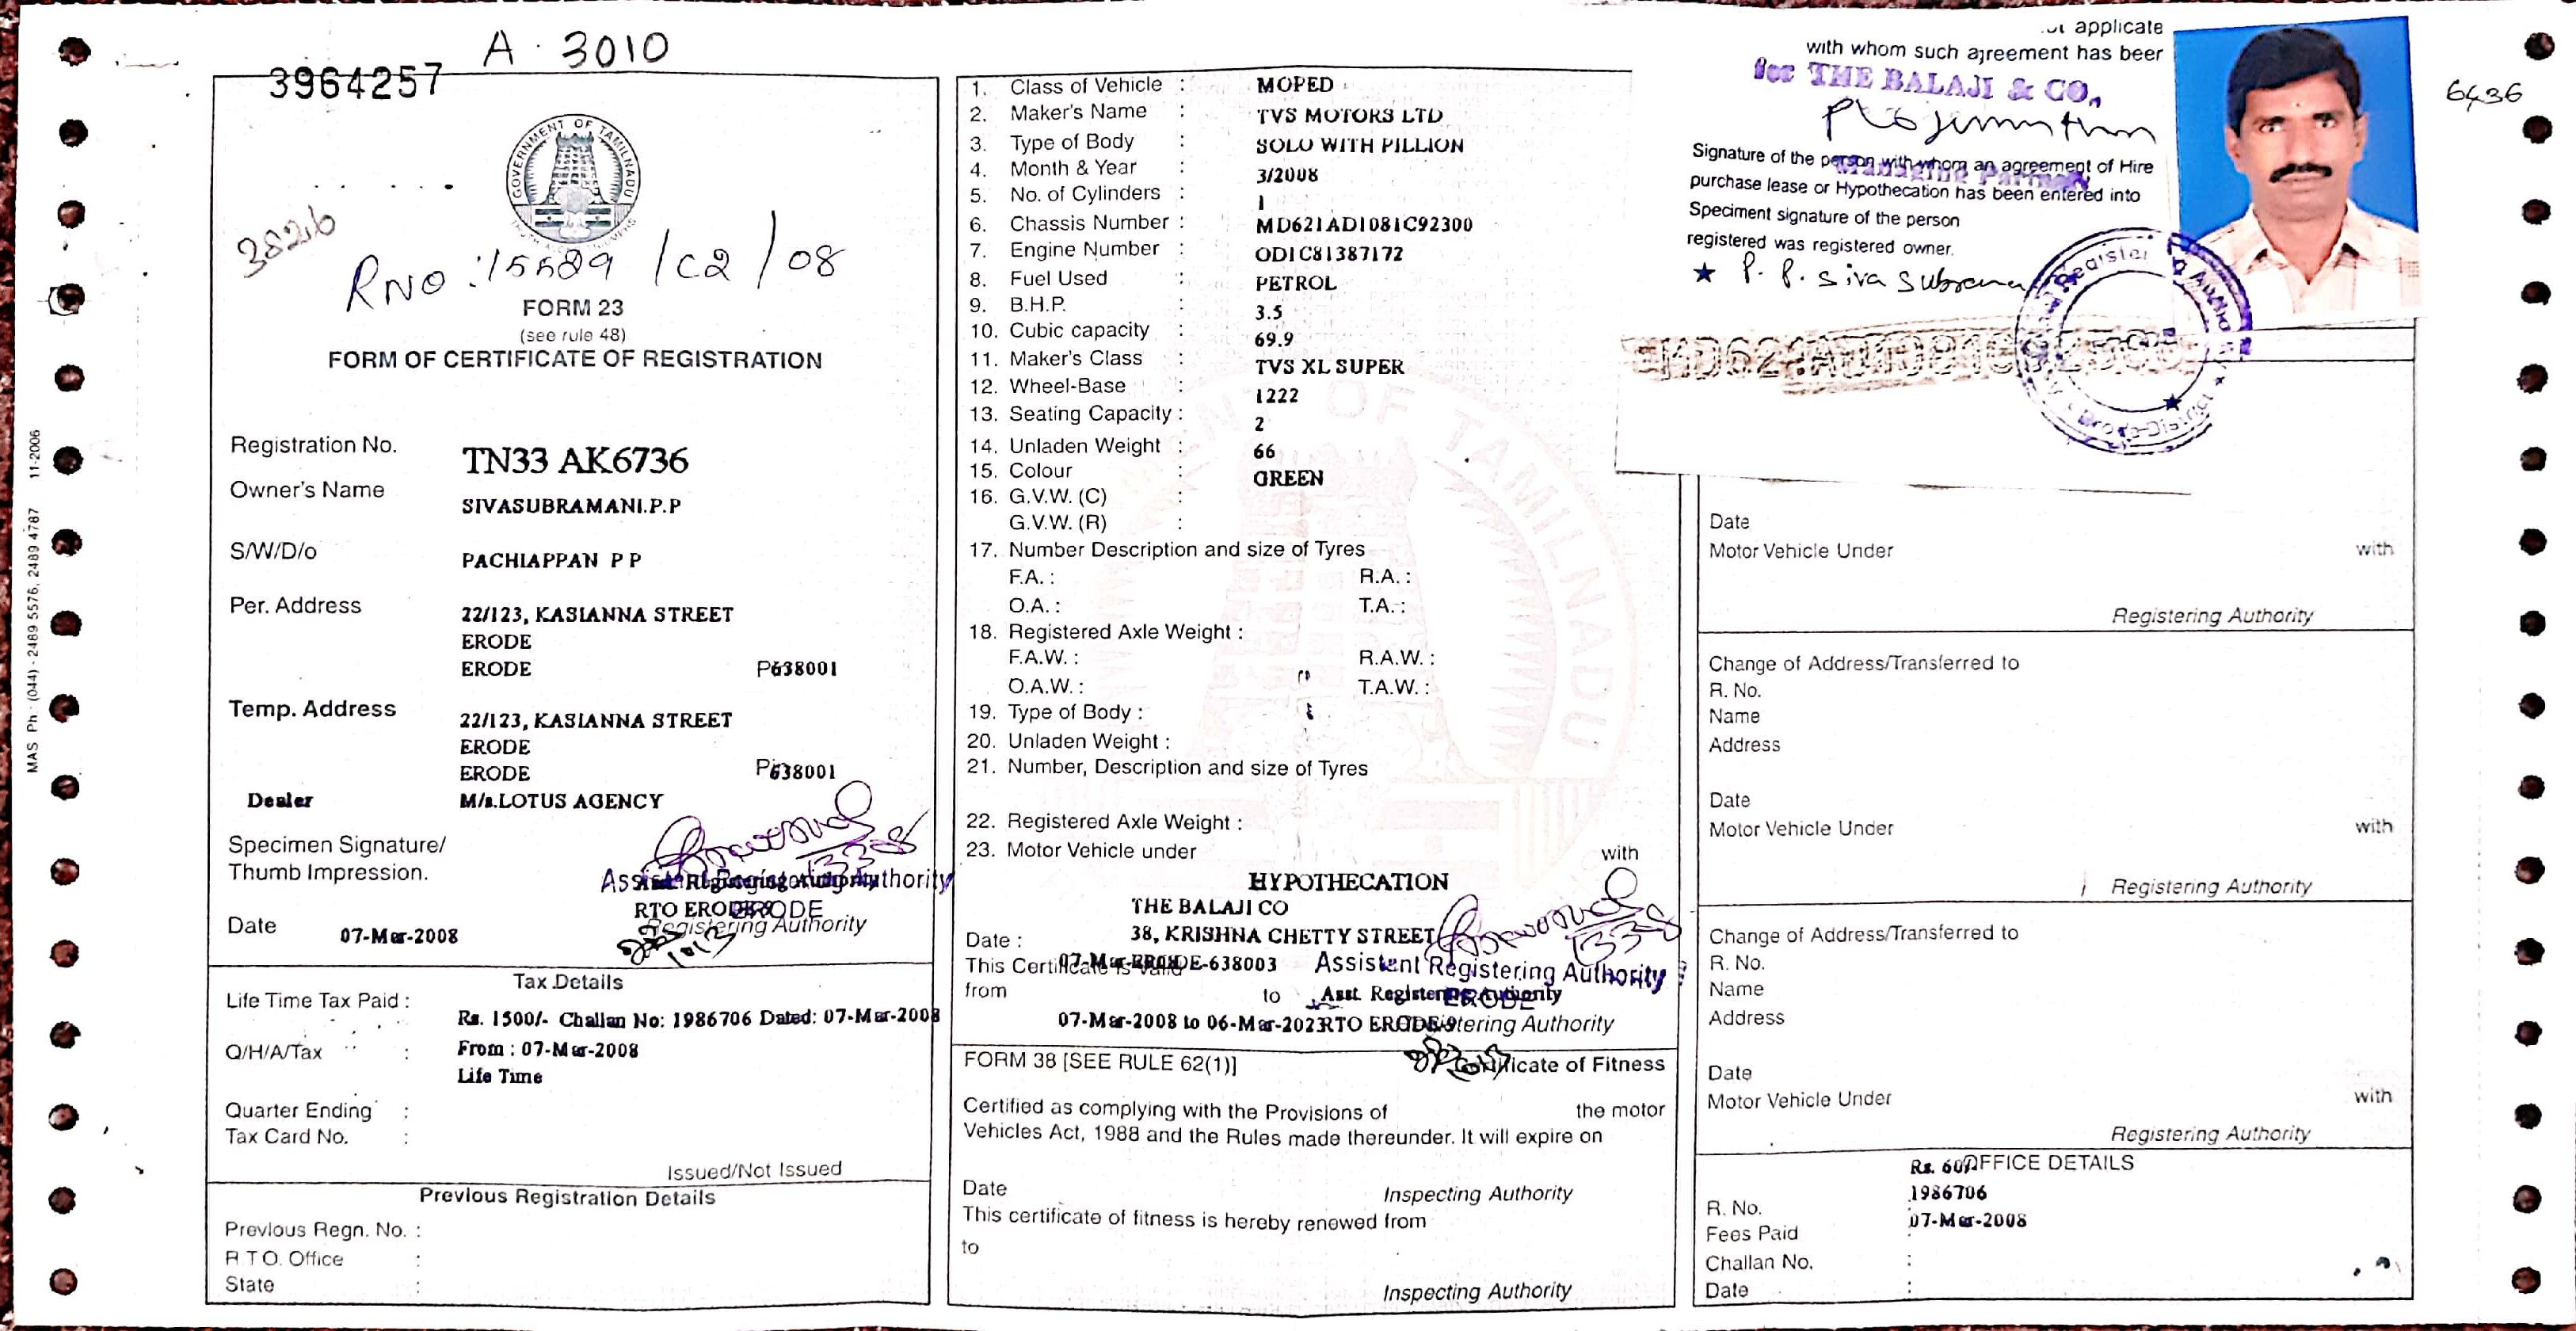 A . 3010
3964257
GOVERNMENT OF TAMILNADU
3826
RNO : 15589 / C2 / 08
FORM 23
(see rule 48)
FORM OF CERTIFICATE OF REGISTRATION
Registration No. TN33 AK6736
Owner's Name SIVASUBRAMANI.P.P
S/W/D/o PACHIAPPAN P P
Per. Address 22/123, KASIANNA STREET
ERODE
ERODE 638001
Temp. Address 22/123, KASIANNA STREET
ERODE
ERODE 638001
Dealer M/s.LOTUS AGENCY
Specimen Signature/
Thumb Impression.
Assistant Registering Authority
RTO ERODE
ERODE
Registering Authority
Date 07-Mar-2008
Tax Details
Life Time Tax Paid :
Rs. 1500/- Challan No: 1986706 Dated: 07-Mar-2008
Q/H/A/Tax : From : 07-Mar-2008
Life Time
Quarter Ending :
Tax Card No. :
Issued/Not Issued
Previous Registration Details
Previous Regn. No. :
R.T.O. Office :
State :
MAS Ph : (044) - 2489 5576, 2489 4787 11-2006
1. Class of Vehicle : MOPED
2. Maker's Name : TVS MOTORS LTD
3. Type of Body : SOLO WITH PILLION
4. Month & Year : 3/2008
5. No. of Cylinders : 1
6. Chassis Number : MD621AD1081C92300
7. Engine Number : OD1C81387172
8. Fuel Used : PETROL
9. B.H.P. : 3.5
10. Cubic capacity : 69.9
11. Maker's Class : TVS XL SUPER
12. Wheel-Base : 1222
13. Seating Capacity : 2
14. Unladen Weight : 66
15. Colour : GREEN
16. G.V.W. (C) :
G.V.W. (R) :
17. Number Description and size of Tyres
F.A. : R.A. :
O.A. : T.A. :
18. Registered Axle Weight :
F.A.W. : R.A.W. :
O.A.W. : T.A.W. :
19. Type of Body :
20. Unladen Weight :
21. Number, Description and size of Tyres
22. Registered Axle Weight :
23. Motor Vehicle under with
HYPOTHECATION
THE BALAJI CO
38, KRISHNA CHETTY STREET
Date : 07-Mar-2008 ERODE-638003
This Certificate is valid
Assistant Registering Authority
from to Asst. Registering Authority
ERODE
07-Mar-2008 to 06-Mar-2023 RTO ERODE Registering Authority
FORM 38 [SEE RULE 62(1)] Certificate of Fitness
Certified as complying with the Provisions of the motor
Vehicles Act, 1988 and the Rules made thereunder. It will expire on
Date Inspecting Authority
This certificate of fitness is hereby renewed from
to
Inspecting Authority
applicate
with whom such agreement has beer
for THE BALAJI & CO.,
Managing Partner
Signature of the person with whom an agreement of Hire
purchase lease or Hypothecation has been entered into
Speciment signature of the person
registered was registered owner.
★ P. P. Siva Subrama
6436
Date
Motor Vehicle Under with
Registering Authority
Change of Address/Transferred to
R. No.
Name
Address
Date
Motor Vehicle Under with
Registering Authority
Change of Address/Transferred to
R. No.
Name
Address
Date
Motor Vehicle Under with
Registering Authority
Rs. 60/- OFFICE DETAILS
1986706
R. No. 07-Mar-2008
Fees Paid
Challan No. :
Date :